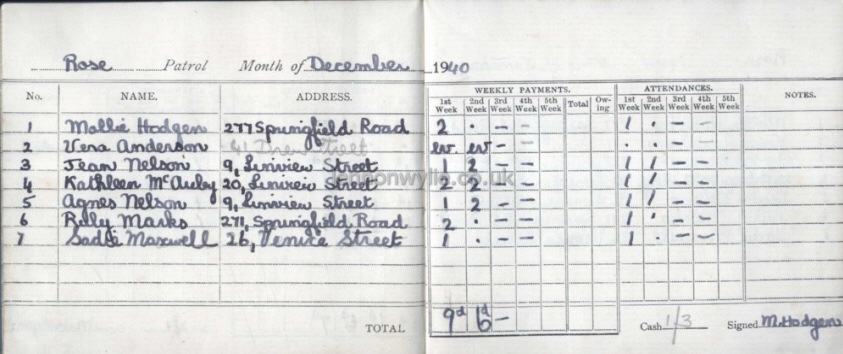 Rose Patrol Month of December 1940
No. NAME. ADDRESS. WEEKLY PAYMENTS. ATTENDANCES. NOTES.
1st Week 2nd Week 3rd Week 4th Week 5th Week Total Owing 1st Week 2nd Week 3rd Week 4th Week 5th Week
1 Mollie Hodgen 277 Springfield Road 2 . - - 1 . - -
2 Vera Anderson 41 Street ev ev - - . . - -
3 Jean Nelson 9, Liniview Street 1 2 - - 1 1 - -
4 Kathleen McAuley 20, Liniview Street 2 2 - - 1 1 - -
5 Agnes Nelson 9, Liniview Street 1 2 - - 1 1 - -
6 Marks 271, Springfield Road 2 . - - 1 . - -
7 Sadie Maxwell 26, Venice Street 1 . - - 1 . - -
TOTAL 9d 6d - Cash 1/3 Signed M. Hodgen